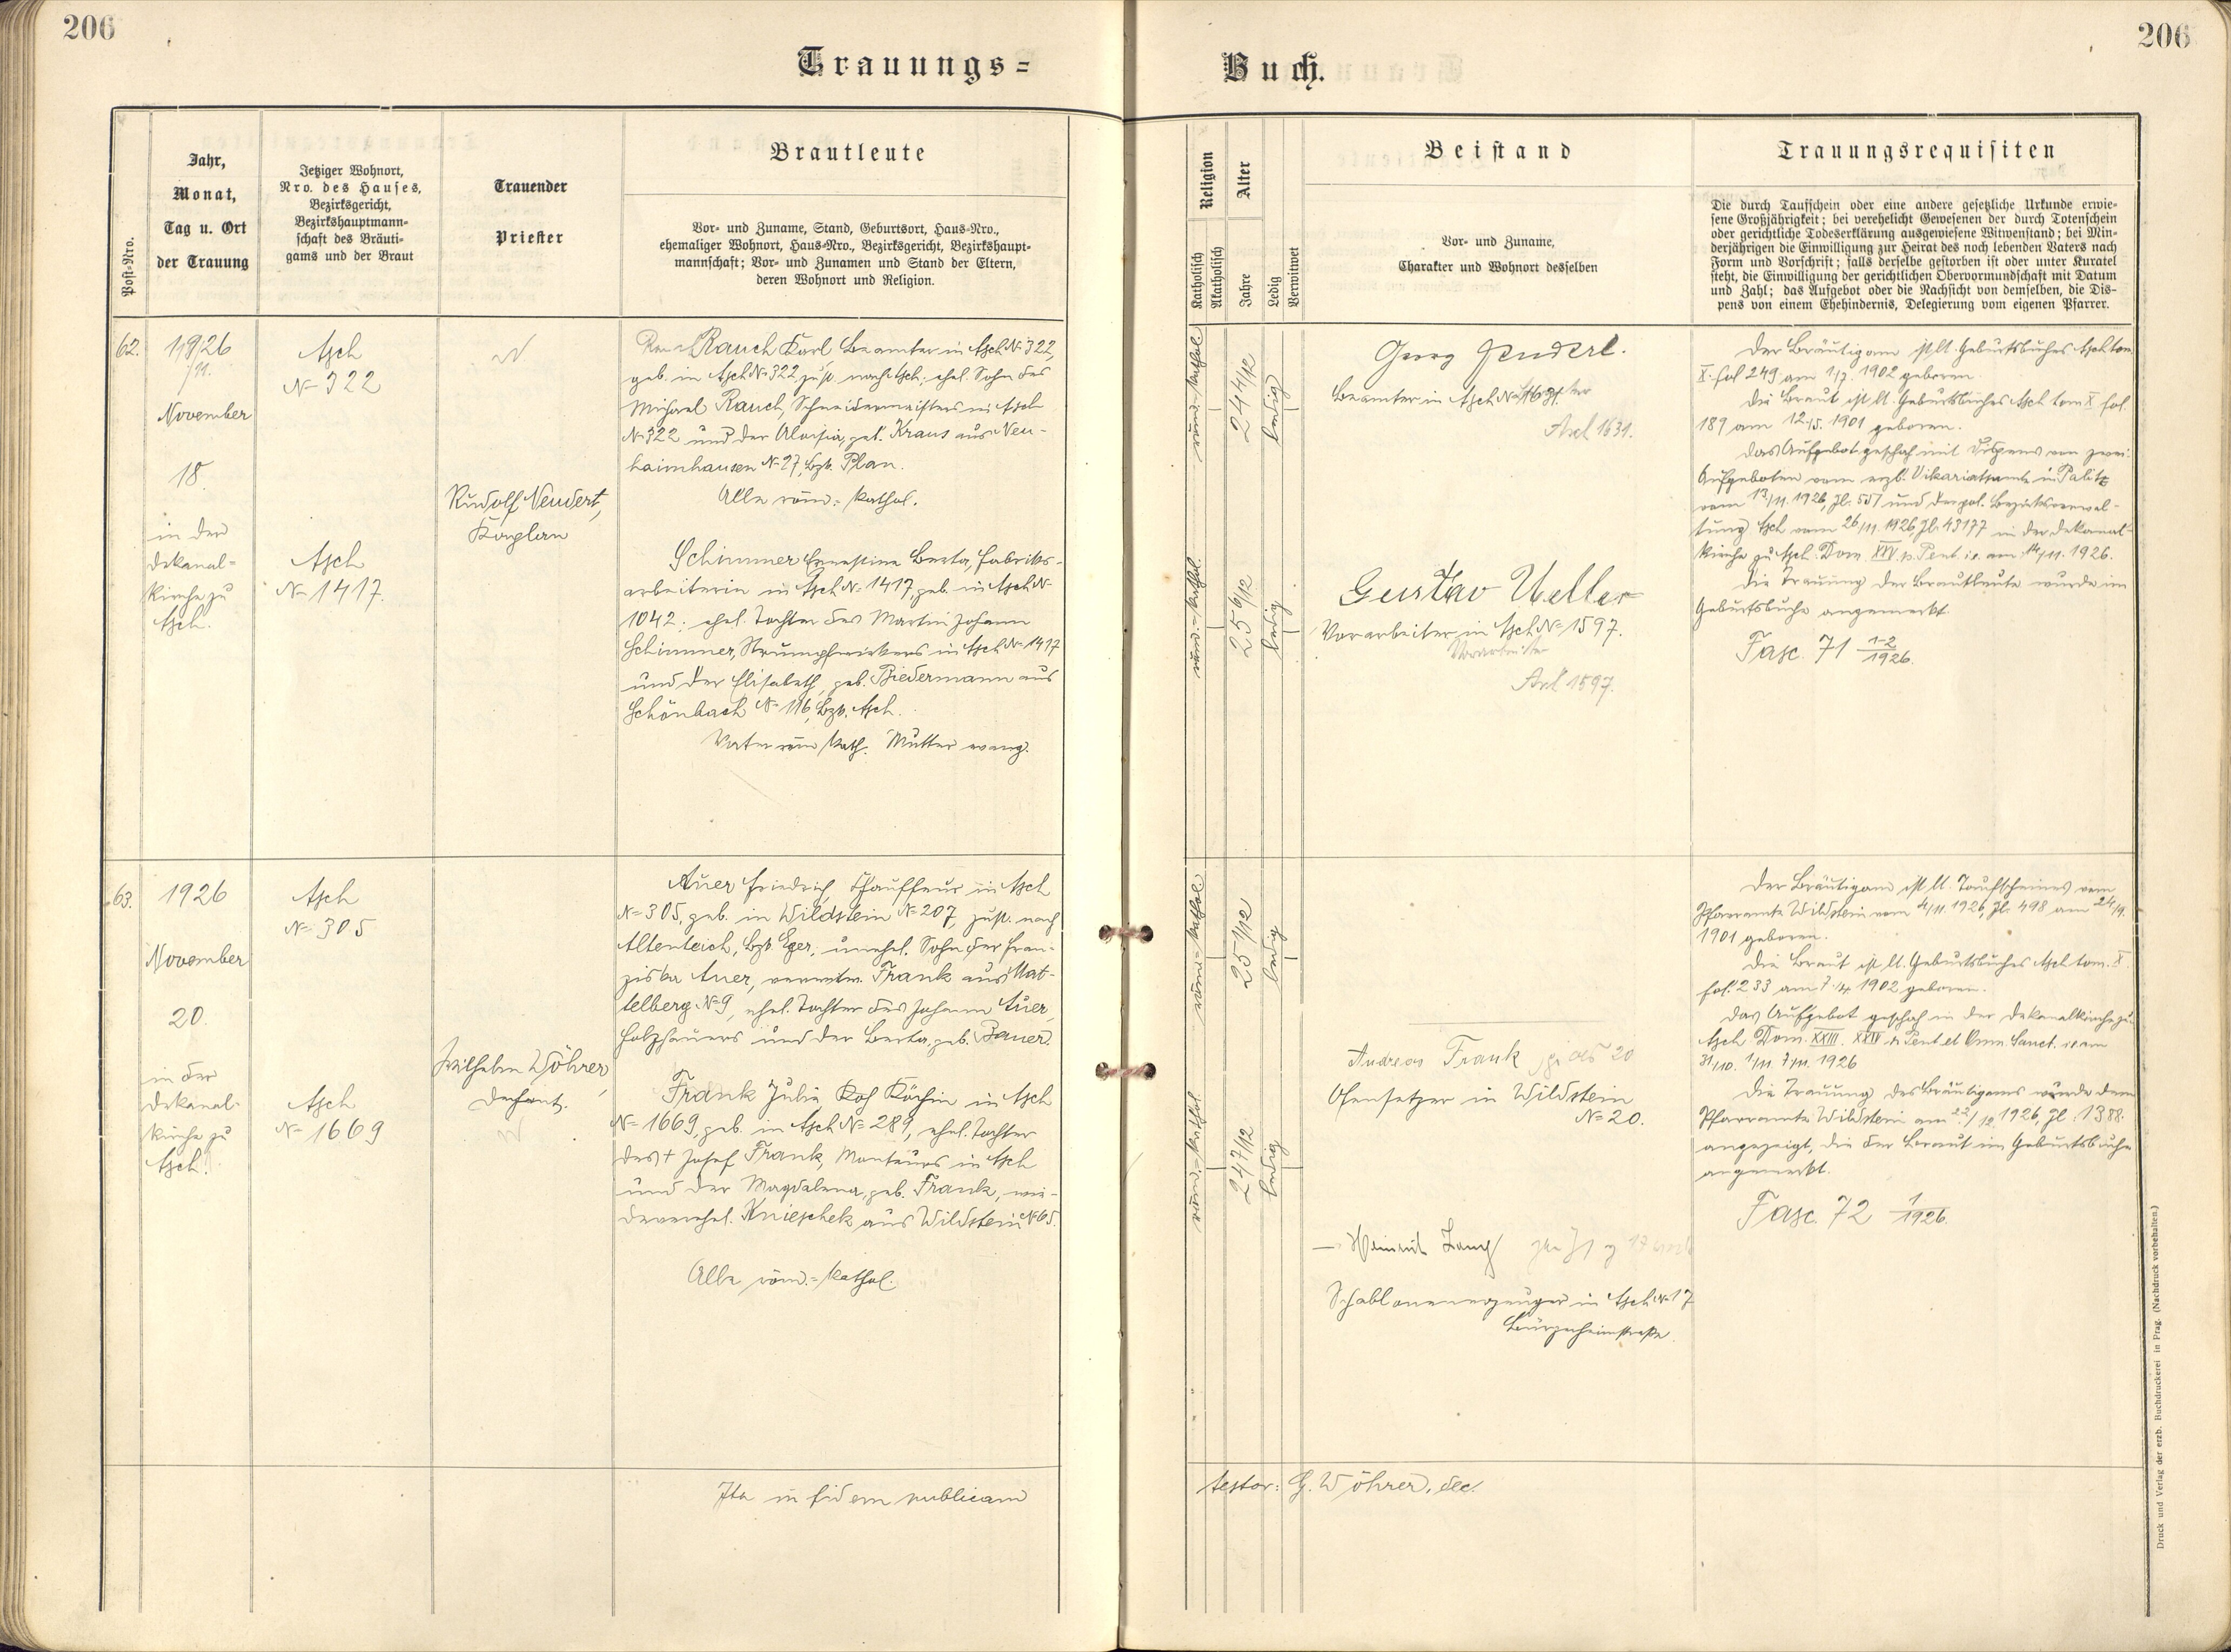 206
Trauungs=
Post-Nro.
Jahr,
Monat,
Tag u. Ort
der Trauung
Jetziger Wohnort,
Nro. des Hauses,
Bezirksgericht,
Bezirkshauptmann=
schaft des Bräuti=
gams und der Braut
Trauender
Priester
Brautleute
Vor- und Zuname, Stand, Geburtsort, Haus-Nro.,
ehemaliger Wohnort, Haus-Nro., Bezirksgericht, Bezirkshaupt=
mannschaft; Vor- und Zunamen und Stand der Eltern,
deren Wohnort und Religion.
62.
1926
November
18.
in der
Dekanal=
kirche zu
Asch.
Asch
№ 322
Asch
№ 1417.
Rudolf Neudert,
Kaplan
Rauch Karl Beamter in Asch № 322,
geb. in Asch № 322 zust. nach Asch; ehel. Sohn des
Michael Rauch, Schneidermeisters in Asch
№ 322 und der Aloisia, geb. Kraus aus Neu-
haimhausen № 27, Bzk. Plan.
Alle röm.=kathol.
Schimmer Ernestine Berta, Fabriks-
arbeiterin in Asch № 1417, geb. in Asch №
1042; ehel. Tochter des Martin Johann
Schimmer, Strumpfwirkers in Asch № 1417
und der Elisabeth, geb. Biedermann aus
Schönbach № 116, Bzk. Asch.
Vater röm. kath. Mutter evang.
63.
1926
November
20.
in der
Dekanal-
kirche zu
Asch.
Asch
№ 305
Asch
№ 1669
Wilhelm Wöhrer,
Dechant.
Auer Friedrich, Chauffeur in Asch
№ 305, geb. in Wildstein № 207, zust. nach
Altenteich, Bzk. Eger; unehel. Sohn der Fran-
ziska Auer, verwitw. Frank aus Mat-
telberg № 9, ehel. Tochter des Johann Auer,
Holzhauers und der Berta, geb. Bauer.
Frank Julie Köchin in Asch
№ 1669, geb. in Asch № 289, ehel. Tochter
des + Josef Frank, Monteurs in Asch
und der Magdalena, geb. Frank, wie-
derverehel. Knieschek aus Wildstein № 65.
Alle röm.=kathol.
Ita in fidem publicam
206
Buch.
Religion
Katholisch
Akatholisch
Alter
Jahre
Ledig
Verwitwet
Beistand
Vor- und Zuname,
Charakter und Wohnort desselben
Trauungsrequisiten
Die durch Taufschein oder eine andere gesetzliche Urkunde erwie=
sene Großjährigkeit; bei verehelicht Gewesenen der durch Totenschein
oder gerichtliche Todeserklärung ausgewiesene Witwenstand; bei Min=
derjährigen die Einwilligung zur Heirat des noch lebenden Vaters nach
Form und Vorschrift; falls derselbe gestorben ist oder unter Kuratel
steht, die Einwilligung der gerichtlichen Obervormundschaft mit Datum
und Zahl; das Aufgebot oder die Nachsicht von demselben, die Dis=
pens von einem Ehehindernis, Delegierung vom eigenen Pfarrer.
röm.=kathol
24 4/12
ledig
röm.=kathol.
25 6/12
ledig
Georg
Beamter in Asch №
Asch 1631.
Gustav Ueller
Vorarbeiter in Asch № 1597.
Vorarbeiter
Asch 1597.
Der Bräutigam ist lt. Geburtsbuches Asch tom.
X. fol 249 am 1/7. 1902 geboren.
Die Braut ist lt. Geburtsbuches Asch tom X fol.
189 am 12./5. 1901 geboren.
Das Aufgebot geschah mit Dispens von zwei
Aufgeboten vom erzb. Vikariatsamte in Palitz
vom 13/11. 1926, Zl. 557 und der pol. Bezirksverwal-
tung Asch vom 26/11. 1926, Zl. 43177 in der Dekanal-
kirche zu Asch. Dom. XXV p. Pent. i.e. am 14/11. 1926.
Die Trauung der Brautleute wurde im
Geburtsbuche angemerkt.
Fasc. 71 1-2/1926.
röm.=kathol
25 1/12
ledig
röm.=kathol.
24 7/12
ledig
Andreas Frank
Ofensetzer in Wildstein
№ 20.
Heinrich Lang
Schablonenerzeuger in Asch № 17
Bürgerheimstraße.
Der Bräutigam ist lt. Taufscheines vom
Pfarramte Wildstein vom 4/11. 1926, Zl. 498 am 24/9.
1901 geboren.
Die Braut ist lt. Geburtsbuches Asch tom. X.
fol. 233 am 7./4. 1902 geboren.
Das Aufgebot geschah in der Dekanalkirche zu
Asch Dom. XXIII. XXIV p. Pent et Omn. Sanct. i.e. am
31/10. 1/11. 7/11. 1926
Die Trauung des Bräutigams wurde dem
Pfarramte Wildstein am 22/12. 1926, Zl. 1388.
angezeigt, die der Braut im Geburtsbuche
angemerkt.
Fasc. 72 1/1926.
testor: G. Wöhrer, dec.
Druck und Verlag der erzb. Buchdruckerei in Prag. (Nachdruck vorbehalten.)